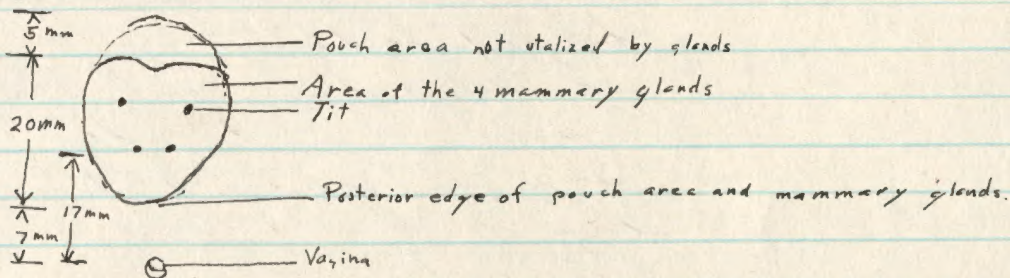 5 mm
Pouch area not utalized by glands
Area of the 4 mammary glands
Tit
20mm
Posterior edge of pouch area and mammary glands.
17mm
7mm
Vagina